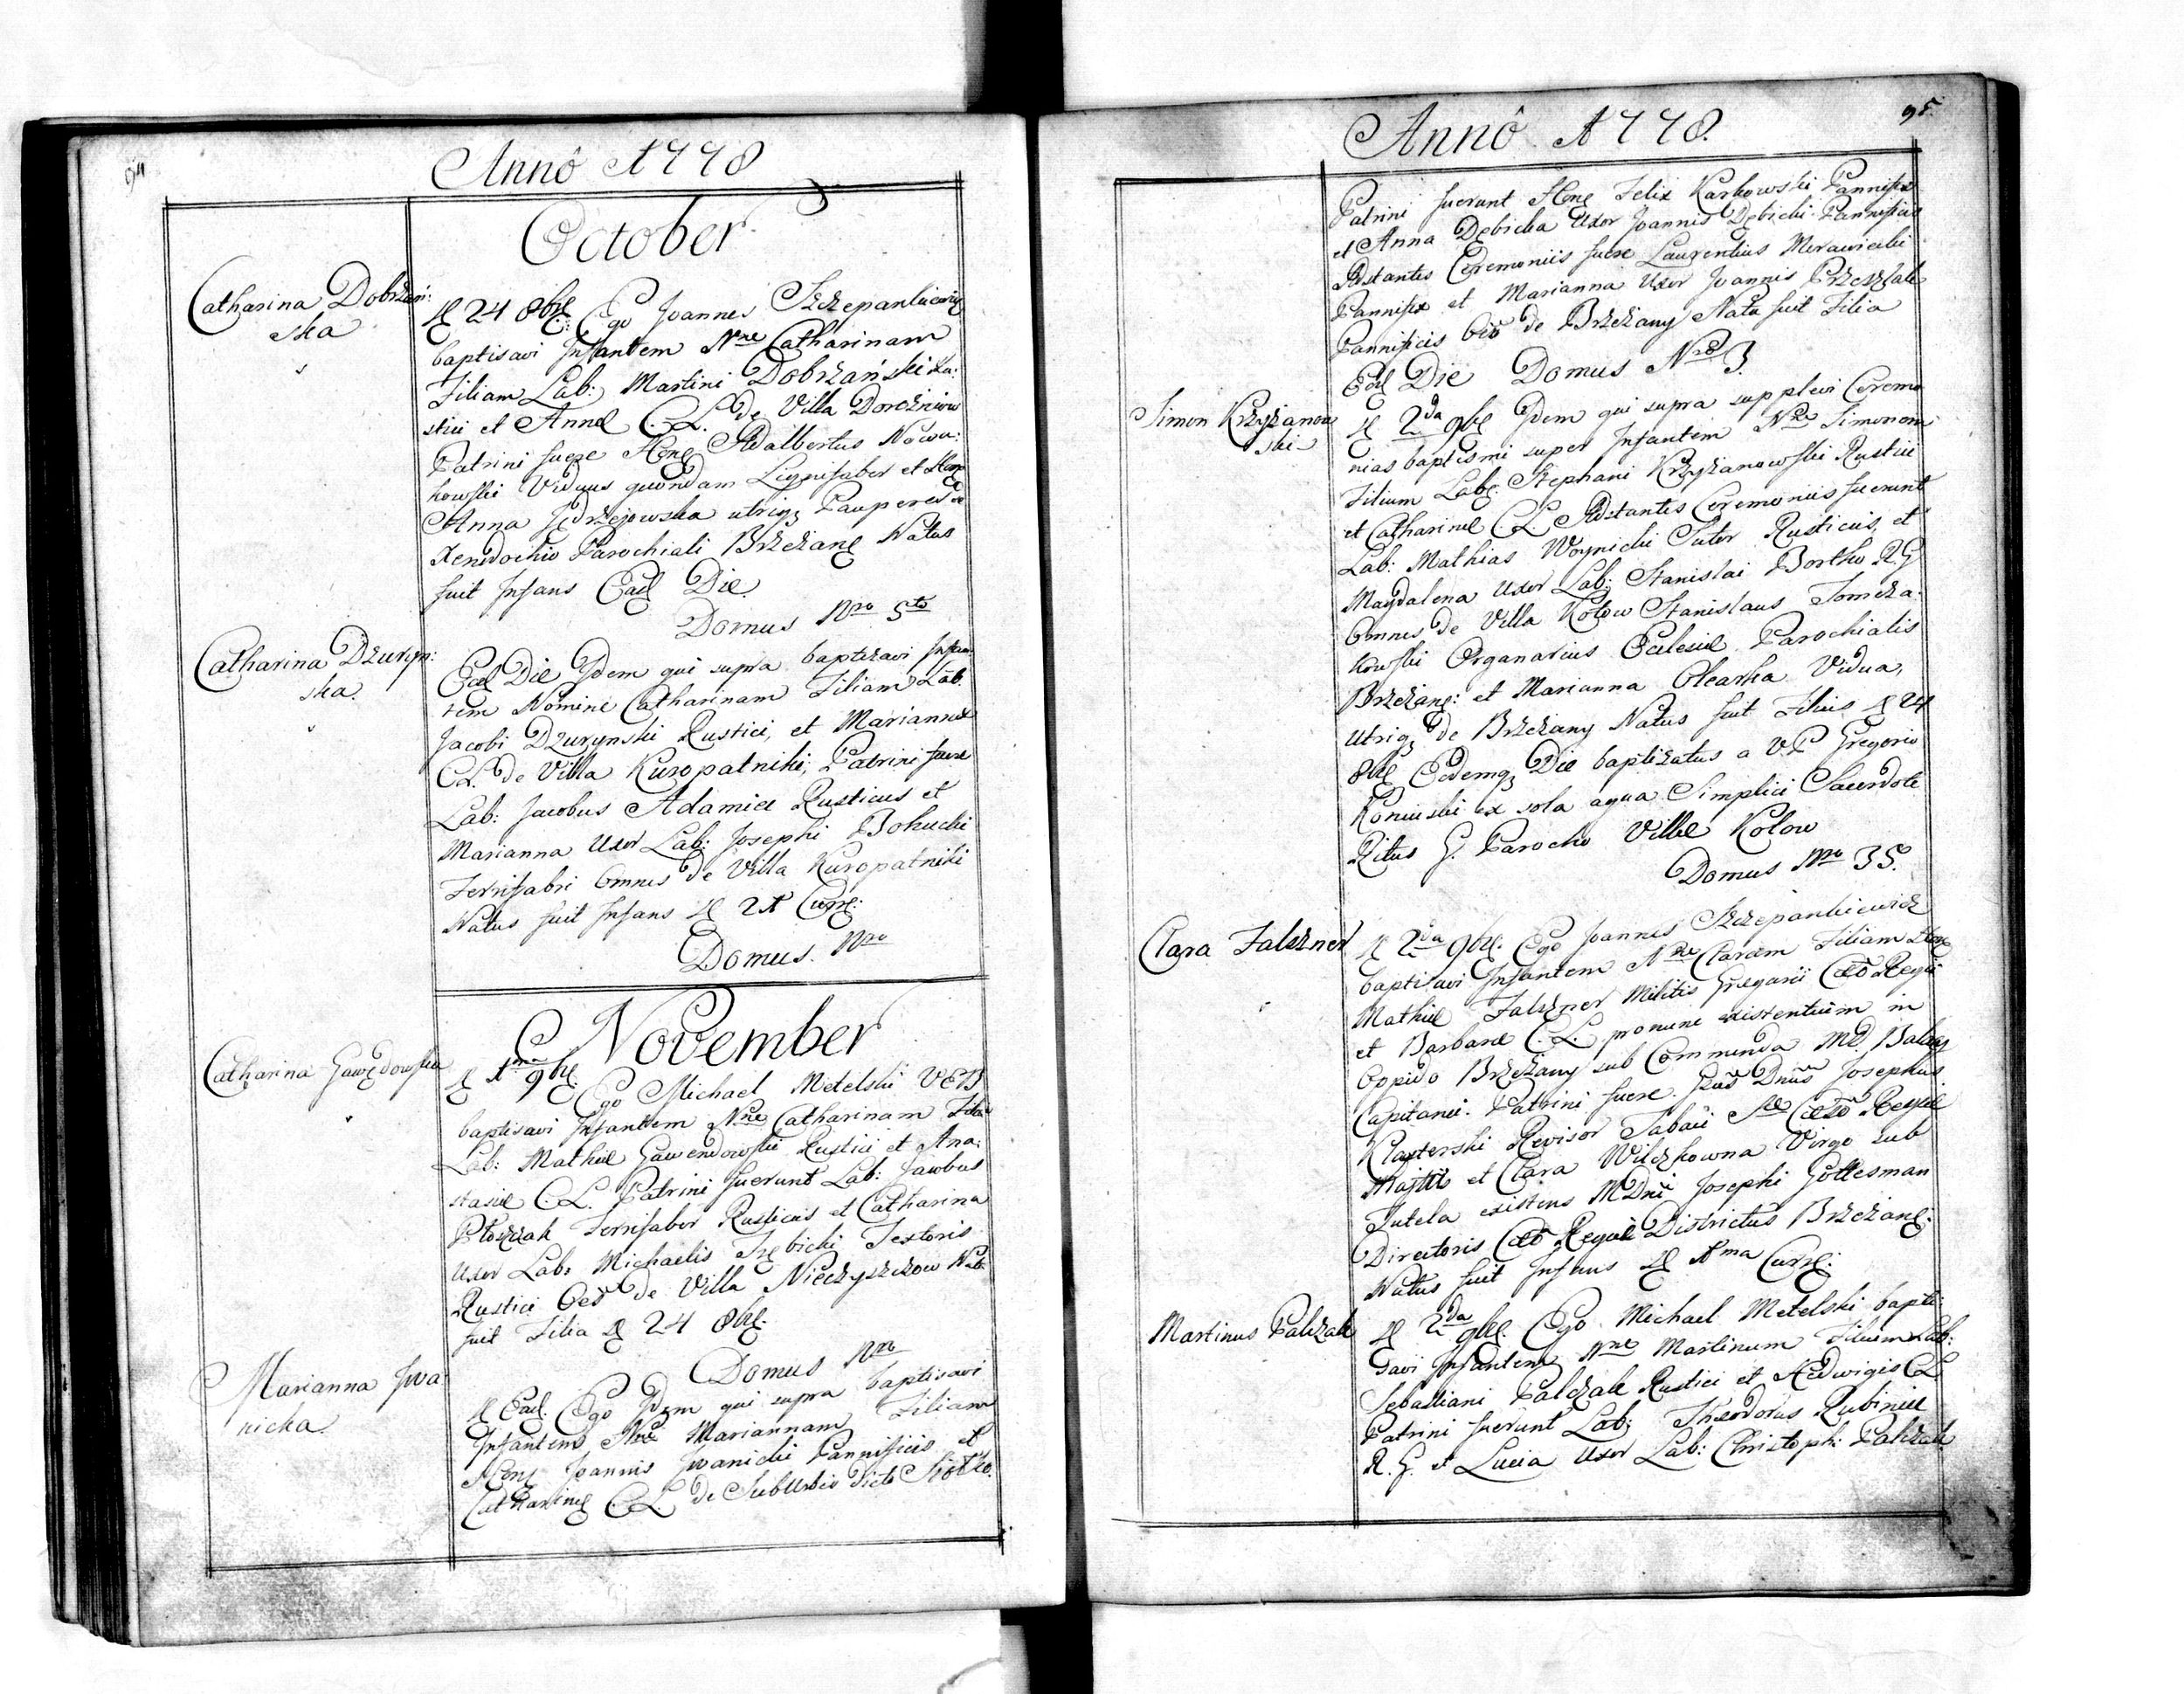 94
Annô 1778
October
Catharina Dobrzań:
ska
D 24 8bris Ego Joannes Szczepankiewicz
baptisavi Infantem Nne Catharinam
Filiam Lab: Martini Dobrzański Ru:
stici et Annæ C. L. de Villa Dorożniow
Patrini fuere Hone Adalbertus Nowa:
kowski Viduus quondam Lignifaber et Hone
Anna Jędrzejowska utriq; Pauperes ex
Xenodochio Parochiali Brzeżane Natus
fuit Infans Ead Die
Domus Nro 5to
Catharina Dzuryn:
ska.
Ead Die Idem qui supra baptizavi Infan:
tem Nomine Catharinam Filiam Lab:
Jacobi Dzurynski Rustici, et Mariannæ
C. L. de Villa Kuropatniki; Patrini fuere
Lab: Jacobus Adamice Rusticus et
Marianna Uxor Lab: Josephi Bohucki
Ferrifabri Omnes de Villa Kuropatniki
Natus fuit Infans D 21 Curre:
Domus Nro
November
Catharina Gawędowska
D 1ma 9bris Ego Michael Metelski VEB
baptisavi Infantem Nne Catharinam Filia
Lab: Mathiæ Gawendowski Rustici et Ana:
stasiæ C. L. Patrini fuerunt Lab: Jacobus
Ptoszak Ferrifaber Rusticus et Catharina
Uxor Lab: Michaelis Trębicki Textoris
Rustici Oes de Villa Nieczyszczow Nata
fuit Filia D 24 8bris
Domus Nro
Marianna Iwa
nicka.
D Ead. Ego Idem qui supra baptisavi
Infantem Nne Mariannam Filiam
Hone Joannis Iwanicki Pannificis et
Catharinæ C. L. de Suburbio dicto Siołko.
95
Annô 1778.
Patrini fuerunt Hone Felix Karkowski Pannifex
et Anna Dębicka Uxor Joannis Dębicki Pannificis
Astantes Ceremoniis fuere Laurentius Merawicki
Pannifex et Marianna Uxor Joannis
Pannificis Oes de Brzeżany Nata fuit Filia
Ead Die Domus Nro 3.
Simon Krzyżanow
ski
D 2da 9bris Idem qui supra supplevi Ceremo
nias baptismi super Infantem Nne Simonem
Filium Lab: Stephani Krzyżanowski Rustici
et Catharinæ C. L. Astantes Ceremoniis fuerunt
Lab: Mathias Woynicki Sutor Rusticus, et
Magdalena Uxor Lab: Stanislai Bortko R. G
Omnes de Villa Kotow Stanislaus Tomcza:
kowski Organarius Ecclesiæ Parochialis
Brzeżane: et Marianna Olearka Vidua,
Utriq; de Brzeżany Natus fuit Filius D 24
8bris Eademq; Die baptizatus a VP Gregorio
Koniuski ex sola aqua Simplici Sacerdote
Ritus G. Parocho Villæ Kotow
Domus Nro 35.
Clara Falszner
D 2da 9bris. Ego Joannes Szczepankiewicz
baptisavi Infantem Nne Claram Filiam Hone
Mathiæ Falszner Militis Gregarii Cæso Regii
et Barbaræ C. L. pronunc existentium in
Oppido Brzeżany sub Commenda MD.
Capitanei. Patrini fuere. Gnus Dnus Josephus
Klasterski Revisor Tabaci Sæ Cæso Regiæ
Majttis et Clara Wilczkowna Virgo sub
Tutela existens MDni Josephi Gottesman
Directoris Cæo Regiæ Districtus Brzeżane:
Natus fuit Infans D 1ma Curre:
Martinus Palczak
D 2da 9bris. Ego Michael Metelski bapti:
savi Infantem Nne Martinum Filium Lab:
Sebastiani Palczak Rustici et Hedwigis C L
Patrini fuerunt Lab: Theodorus Rubiniec
R. G. et Lucia Uxor Lab: Christoph: Palczak